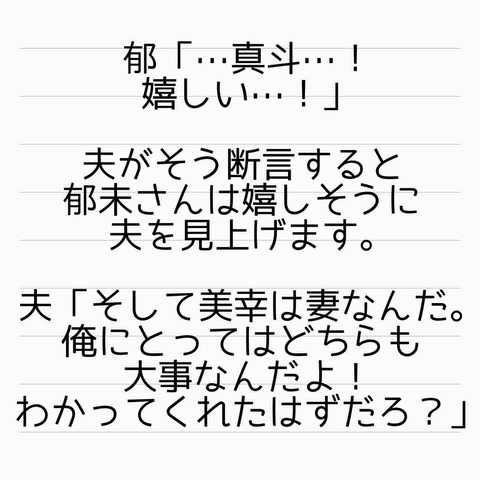 郁「…真斗…！
嬉しい…！」
夫がそう断言すると
郁未さんは嬉しそうに
夫を見上げます。
夫「そして美幸は妻なんだ。
俺にとってはどちらも
大事なんだよ！
わかってくれたはずだろ？」